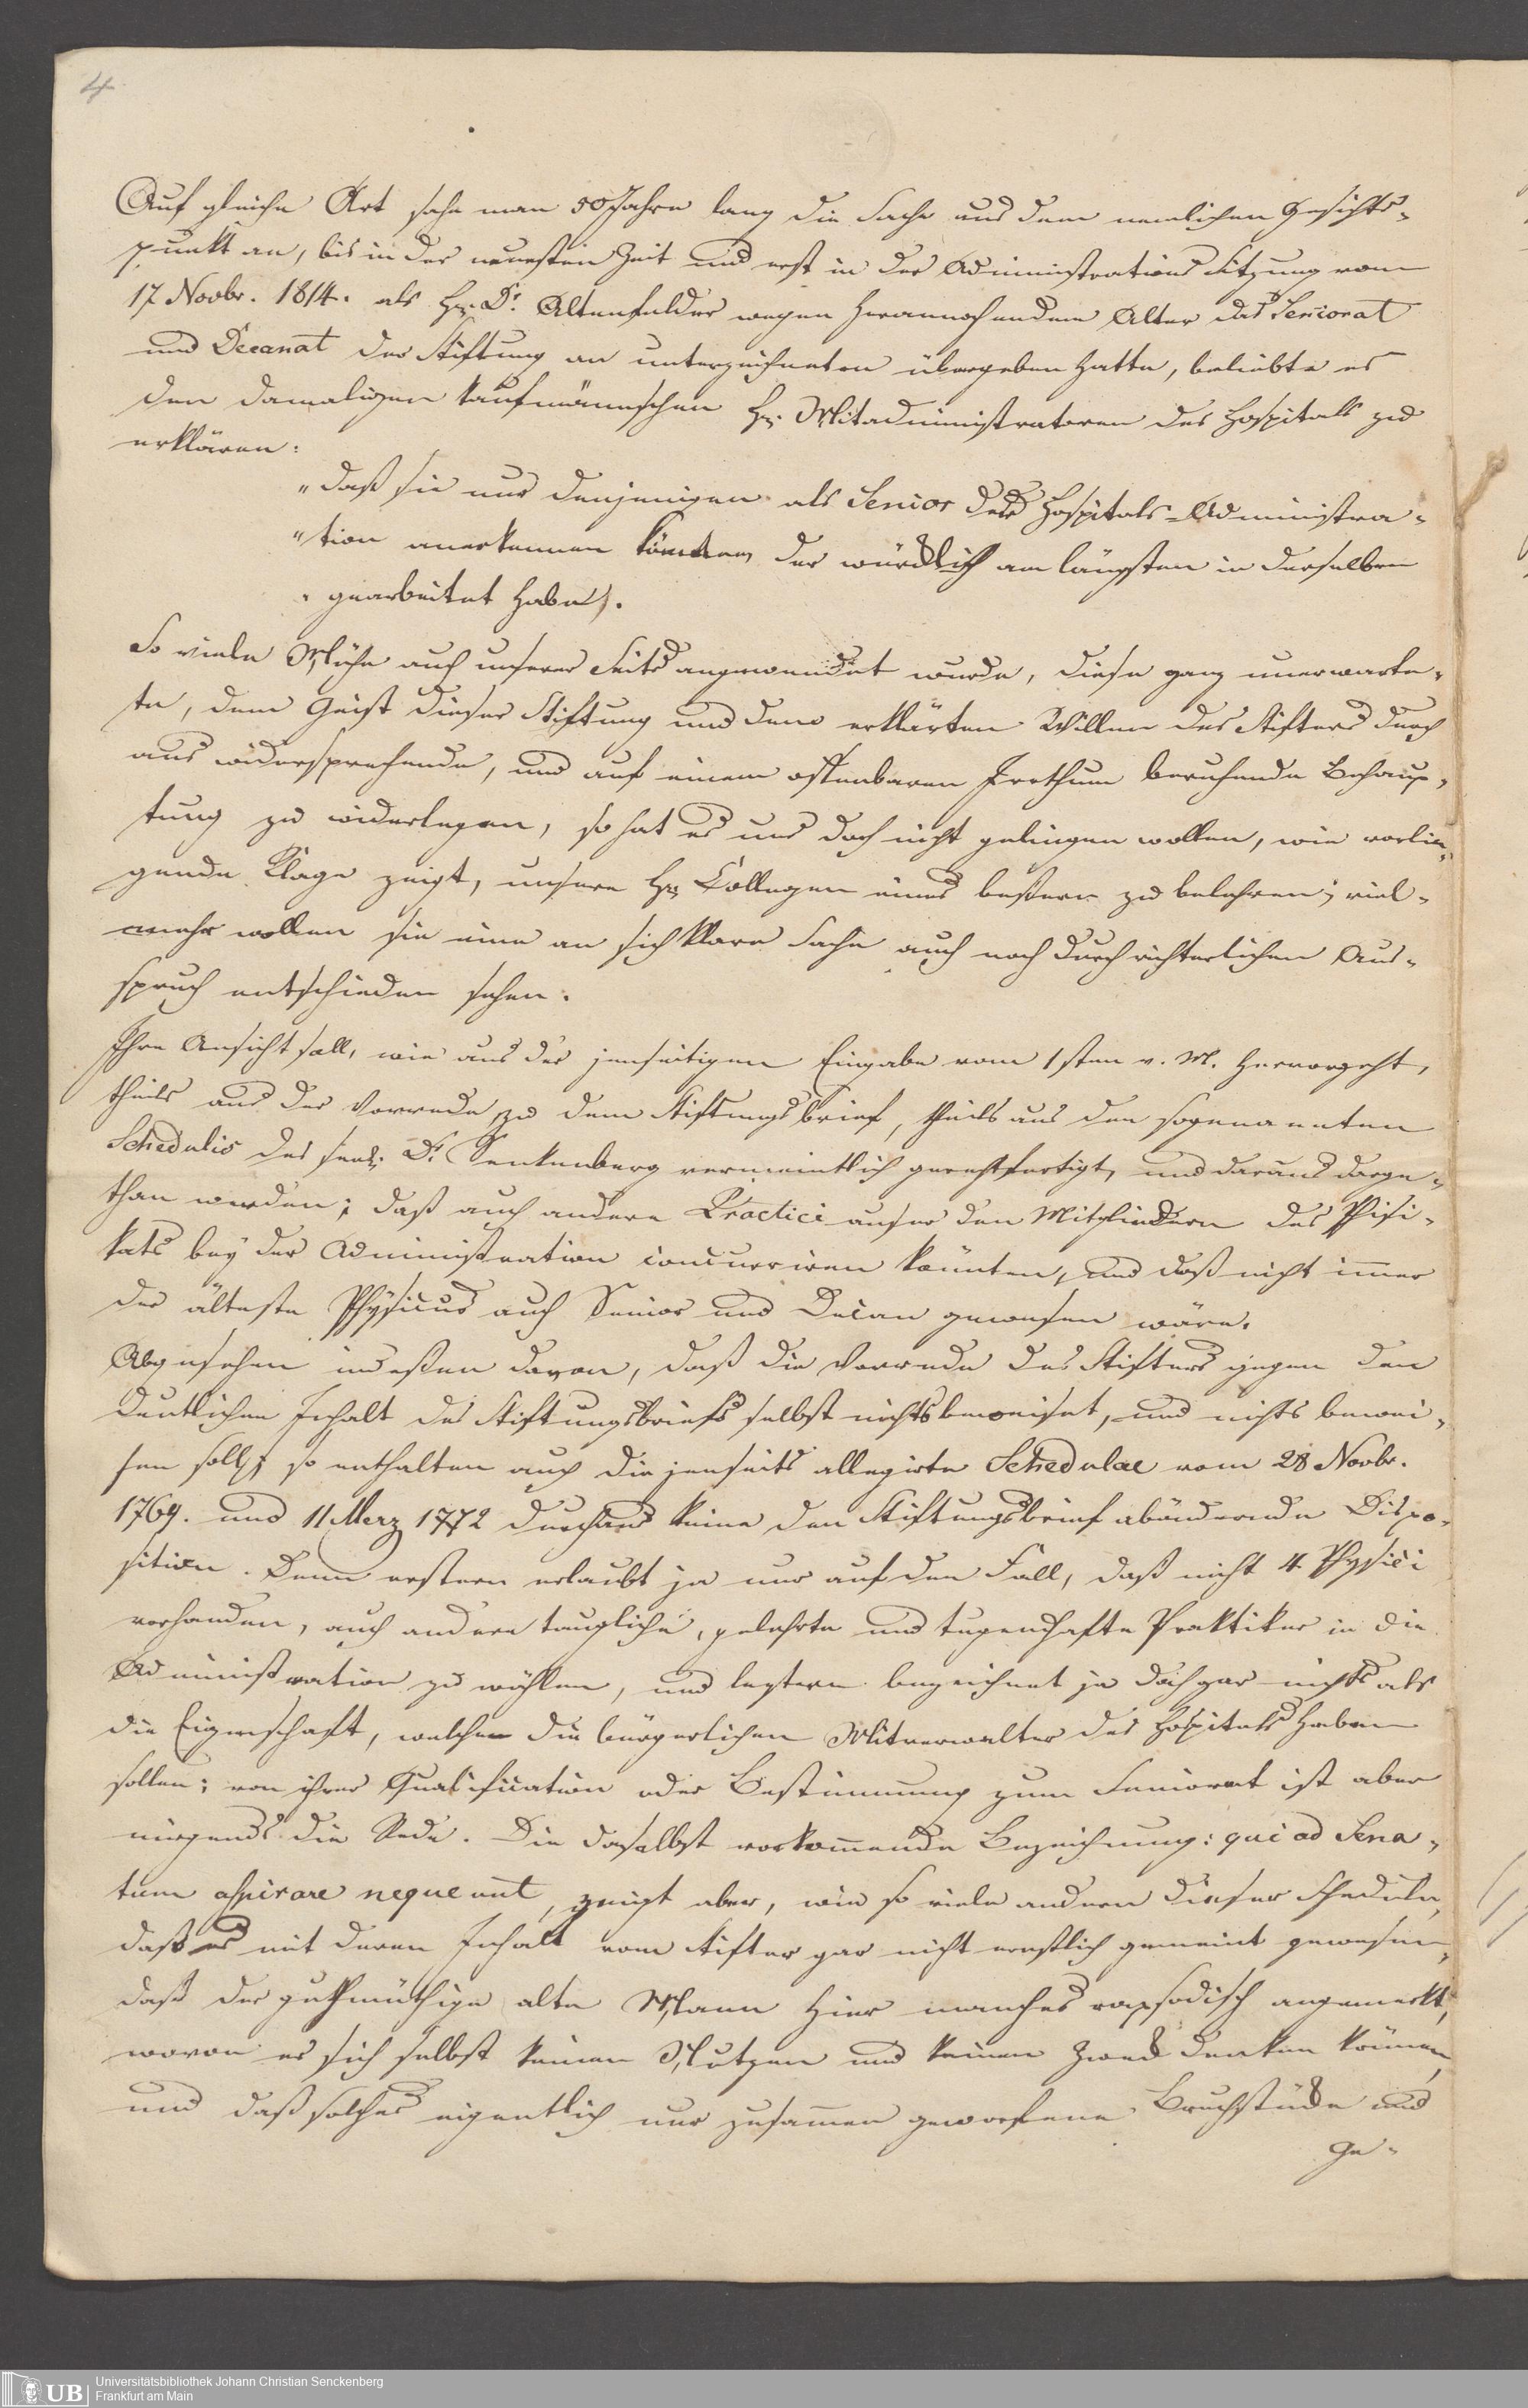 4
Auf gleiche Art sahe man 50 Jahre lang die Sache aus dem nemlichen Gesichts-
punkt an, bis in der neuesten Zeit und erst in der Administrations Sitzung vom
17 Novbr. 1814. als Hr. Dr. Altenfelder wegen herannahendem Alter das Seniorat
und Decanat der Stiftung an unterzeichneten übergeben hatte, beliebte es
den damaligen kaufmännischen Hr. Mitadministratoren des Hospitals zu
erklären:
"daß sie nur denjenigen als Senior der Hospitals-Administra-
"tion anerkennen könnten, der würklich am längsten in derselben
"gearbeitet habe".
So viele Mühe auch unserer Seits angewendet wurde, diese ganz unerwarte-
te, dem Geist dieser Stiftung und dem erklärten Willen des Stifters durch
aus widersprechende, und auf einem offenbaren Irrthum beruhende Behaup-
tung zu widerlegen, so hat es uns doch nicht gelingen wollen, wie vorlie-
gende Klage zeigt, unsere Hr. Collegen eines beßern zu belehren; viel-
mehr wollen sie eine an sich klare Sache auch noch durch richterlichen Aus-
spruch entschieden sehen.
Ihre Ansicht soll, wie aus der jenseitigen Eingabe vom 1sten v. M. hervorgeht,
theils aus der Vorrede zu dem Stiftungsbrief, theils aus den sogenannten
Schedulis des seel. Dr. Senkenberg vermeintlich gerechtfertigt, und daraus darge-
than werden; daß auch andere Practici außer den Mitgliedern des Phisi-
kats bey der Administration concurriren könnten, und daß nicht immer
der älteste Physicus auch Senior und Decan gewesen wäre.
Abgesehen indeßen davon, daß die Vorrede des Stifters gegen den
deutlichen Inhalt des Stiftungsbriefs selbst nichts beweiset, und nichts bewei-
sen soll; so enthalten auch die jenseits allegirte Schedulae vom 28 Novbr.
1769. und 11 Merz 1772 durchaus keine den Stiftungsbrief abändernde Dispo-
sition. Denn erstere erlaubt ja nur auf den Fall, daß nicht 4. Physici
vorhanden, auch andere taugliche, gelehrte und tugendhafte Praktiker in die
Administration zu wählen, und leztere bezeichnet ja doch gar nichts als
die Eigenschaft, welche die bürgerlichen Mitverwalter des Hospitals haben
sollen; von ihrer Qualification oder Bestimmung zum Seniorat ist aber
nirgends die Rede. Die daselbst vorkommende Bezeichnung: qui ad Sena-
tum aspirare nequeunt, zeigt aber, wie so viele andern dieser Scheduln,
daß es mit deren Inhalt vom Stifter gar nicht ernstlich gemeint gewesen,
daß der gutmüthige alte Mann hier manches rapsodisch angemerkt,
wovon er sich selbst keinen Nutzen und keinen Zweck denken können,
und daß solches eigentlich nur zusammen geworfene Bruchstücke und
Ge-
UB Universitätsbibliothek Johann Christian Senckenberg
Frankfurt am Main